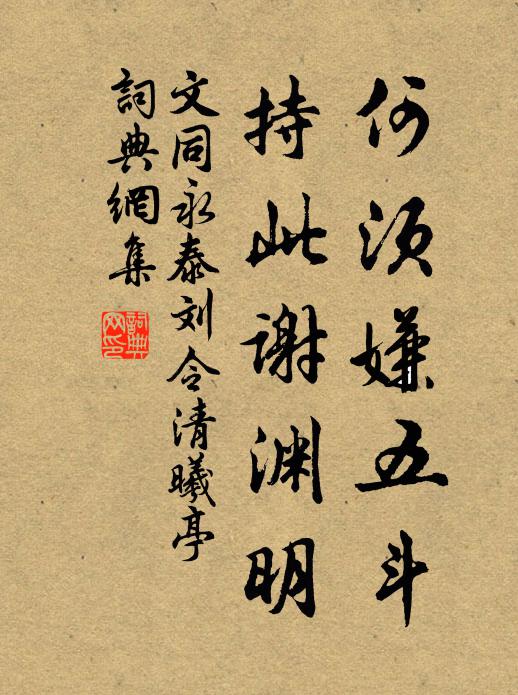 何须嫌五斗
持此谢渊明
文同永泰刘令清曦亭
詞典網集
詞典网印